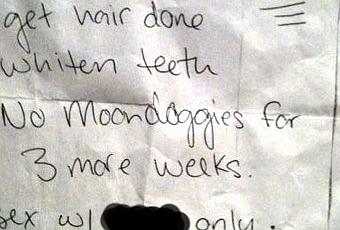 get hair done
whiten teeth
No Moondoggies for
3 more weeks.
sex w/ only.